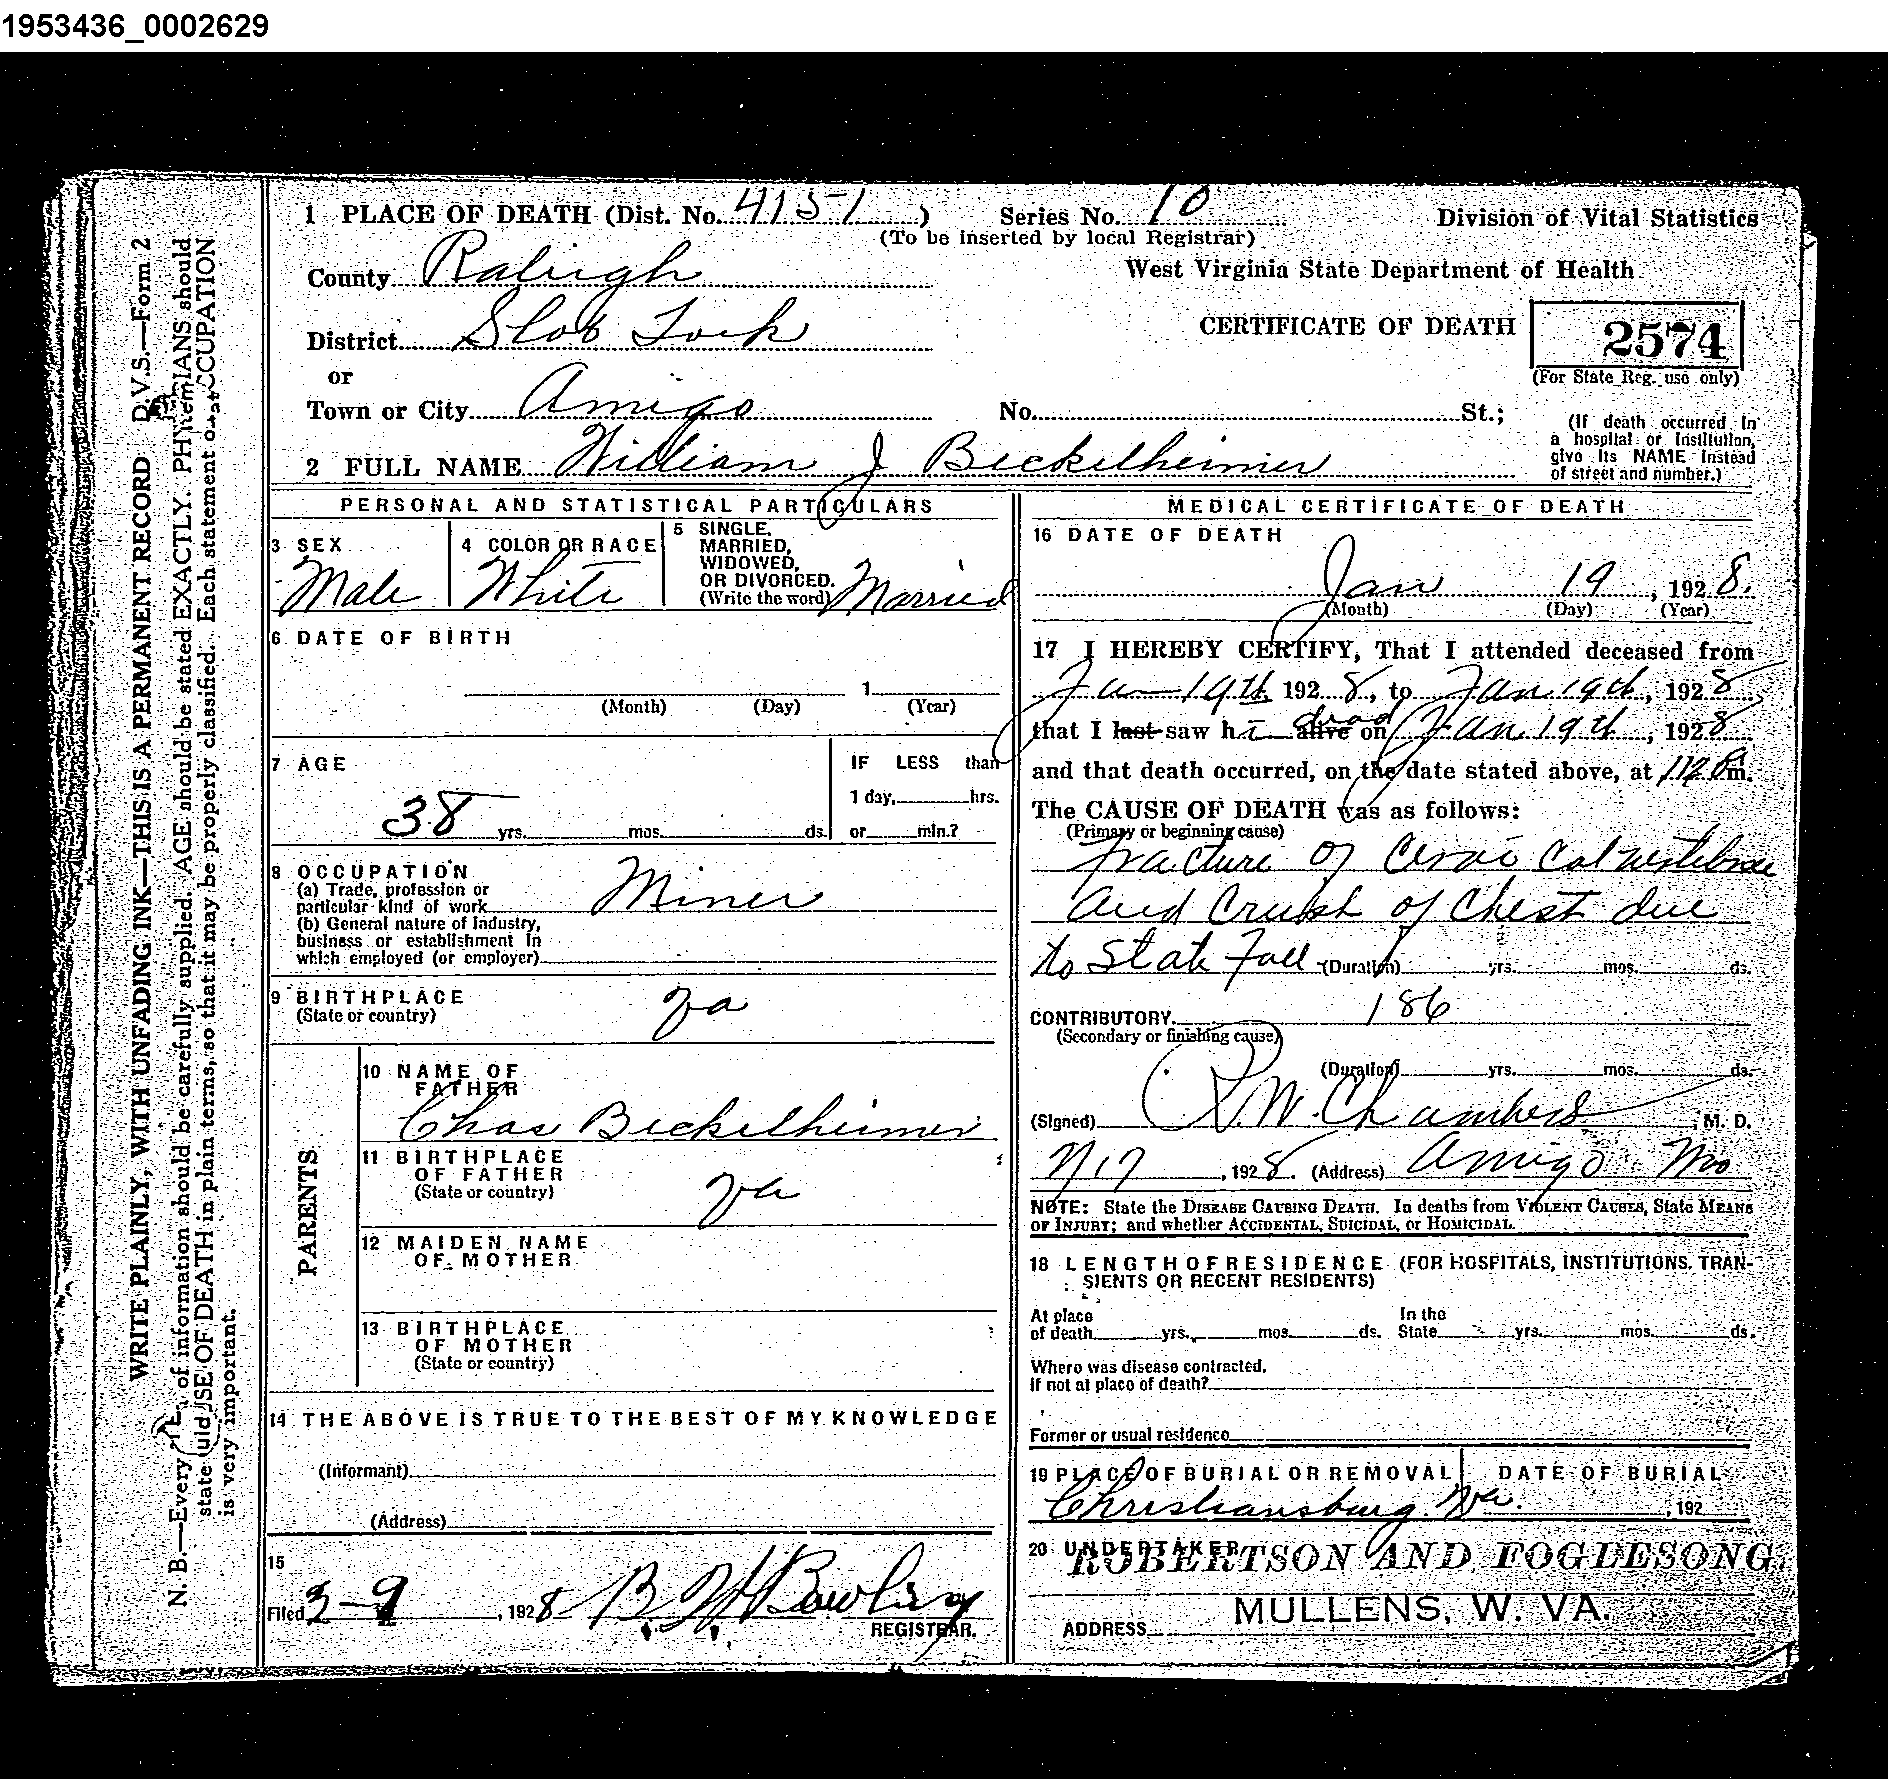 1953436_0002629
1 PLACE OF DEATH (Dist. No. 415-1 ) Series No. 10 Division of Vital Statistics
(To be inserted by local Registrar)
County Raleigh West Virginia State Department of Health
District Slab Fork CERTIFICATE OF DEATH 2574
or (For State Reg. use only)
Town or City Amigo No. St.;
(If death occurred in
a hospital or institution,
give its NAME instead
of street and number.)
2 FULL NAME William J Beckelheimer
PERSONAL AND STATISTICAL PARTICULARS
3 SEX
Male
4 COLOR OR RACE
White
5 SINGLE,
MARRIED,
WIDOWED,
OR DIVORCED.
(Write the word) Married
6 DATE OF BIRTH
1
(Month) (Day) (Year)
7 AGE
38 yrs. mos. ds.
IF LESS than
1 day, hrs.
or min.?
8 OCCUPATION
(a) Trade, profession or
particular kind of work Miner
(b) General nature of Industry,
business or establishment in
which employed (or employer)
9 BIRTHPLACE
(State or country) Va
PARENTS
10 NAME OF
FATHER
Chas Beckelheimer
11 BIRTHPLACE
OF FATHER
(State or country) Va
12 MAIDEN NAME
OF MOTHER
13 BIRTHPLACE
OF MOTHER
(State or country)
14 THE ABOVE IS TRUE TO THE BEST OF MY KNOWLEDGE
(Informant)
(Address)
15
Filed 3-9, 1928 B. H Bowling
REGISTRAR.
MEDICAL CERTIFICATE OF DEATH
16 DATE OF DEATH
Jan 19, 1928.
(Month) (Day) (Year)
17 I HEREBY CERTIFY, That I attended deceased from
Jan 19th 1928, to Jan 19th, 1928
that I last saw hi dead alive on Jan 19th, 1928
and that death occurred, on the date stated above, at m.
The CAUSE OF DEATH was as follows:
(Primary or beginning cause)
Fracture of Cervical vertebrae
and Crush of Chest due
to Slate Fall (Duration) yrs. mos. ds.
CONTRIBUTORY 186
(Secondary or finishing cause)
(Duration) yrs. mos. ds.
(Signed) R.W. Chambers, M. D.
, 1928. (Address) Amigo
NOTE: State the DISEASE CAUSING DEATH. In deaths from VIOLENT CAUSES, State MEANS
OF INJURY; and whether ACCIDENTAL, SUICIDAL, or HOMICIDAL.
18 LENGTH OF RESIDENCE (FOR HOSPITALS, INSTITUTIONS, TRAN-
SIENTS OR RECENT RESIDENTS)
At place In the
of death yrs. mos. ds. State yrs. mos. ds.
Where was disease contracted,
if not at place of death?
Former or usual residence
19 PLACE OF BURIAL OR REMOVAL DATE OF BURIAL
Christiansburg Va. , 192
20 UNDERTAKER ROBERTSON AND FOGLESONG
ADDRESS MULLENS, W. VA.
WRITE PLAINLY, WITH UNFADING INK—THIS IS A PERMANENT RECORD D.V.S.—Form 2
N. B.—Every item of information should be carefully supplied. AGE should be stated EXACTLY. PHYSICIANS should
state CAUSE OF DEATH in plain terms, so that it may be properly classified. Each statement of OCCUPATION
is very important.